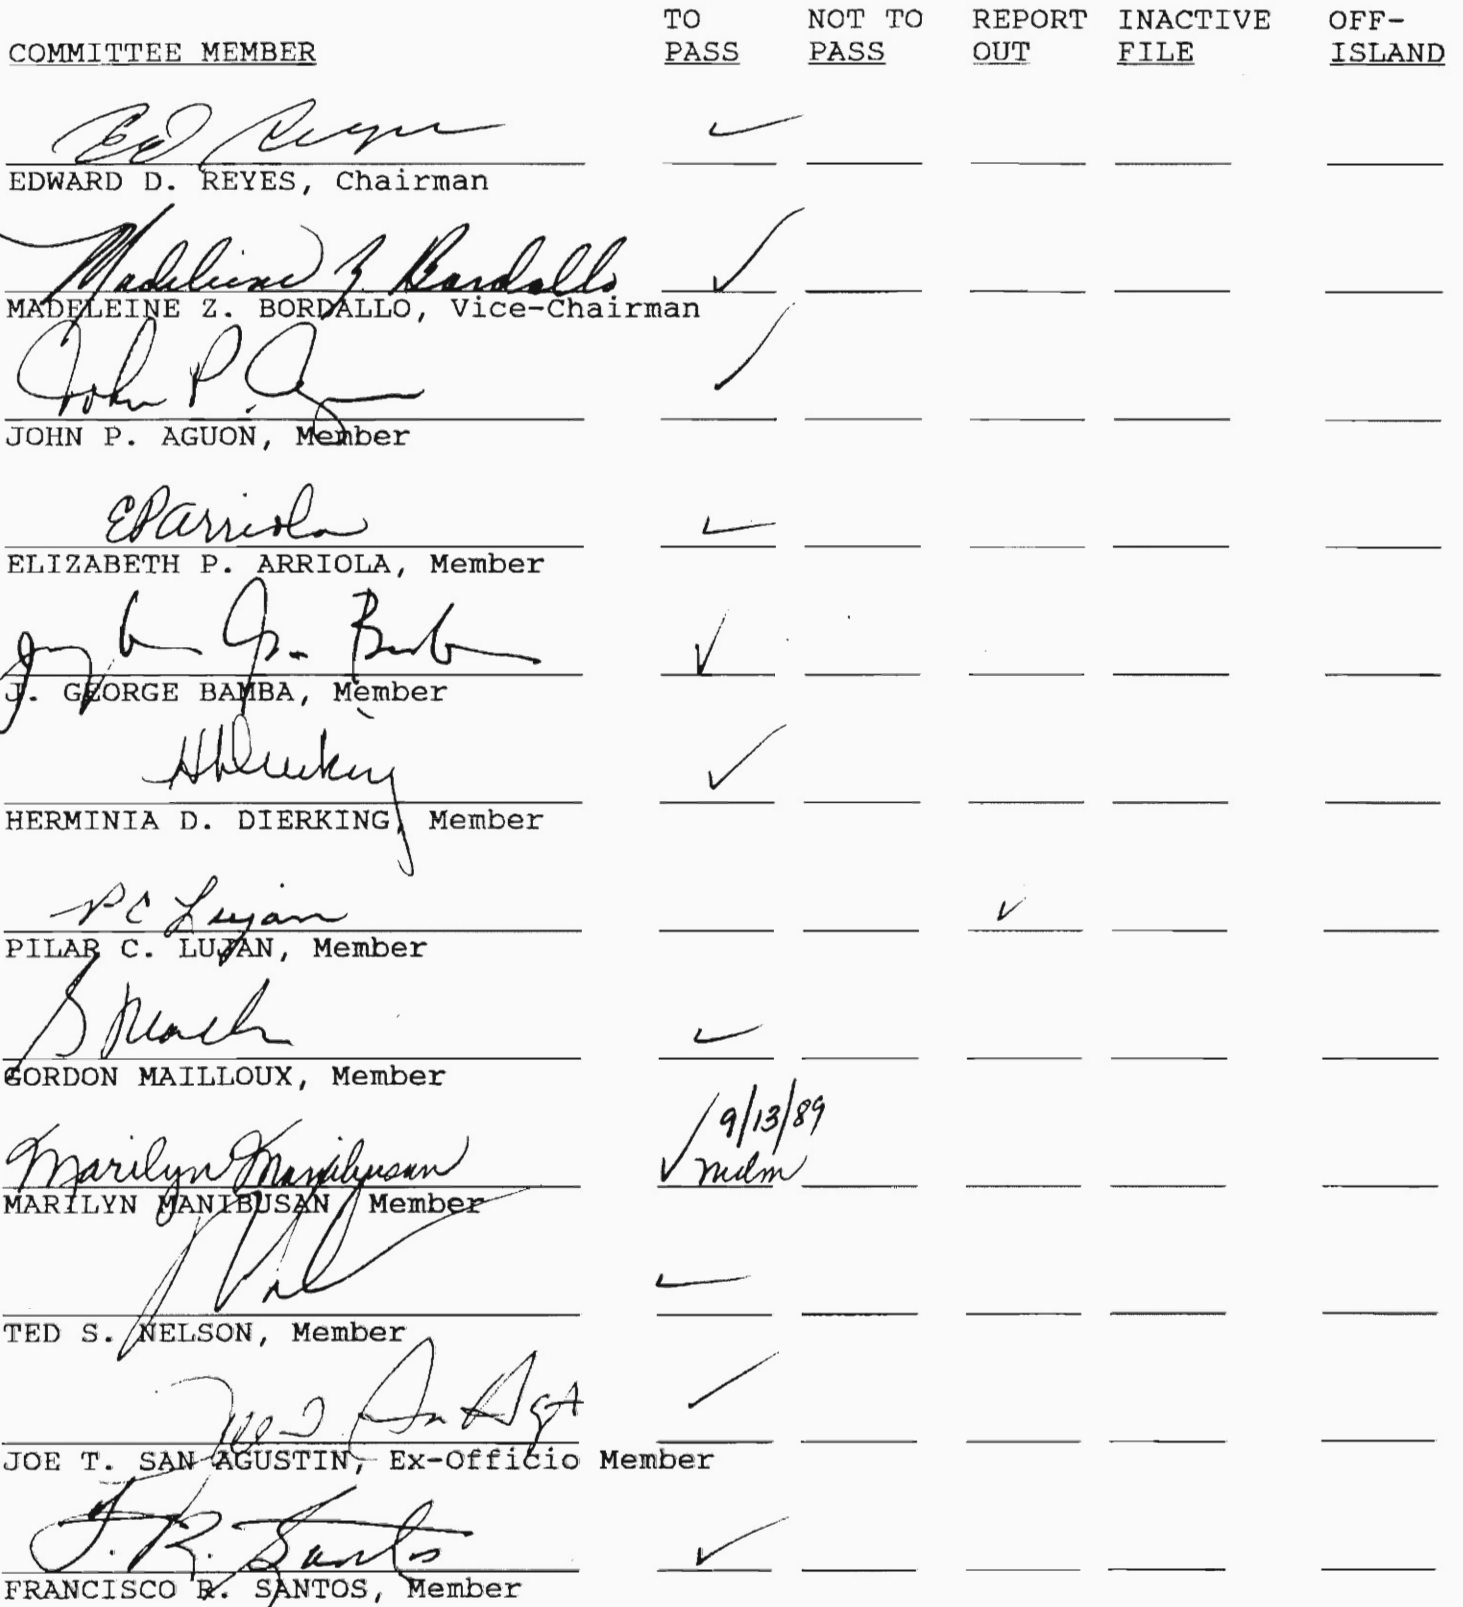 TO NOT TO REPORT INACTIVE OFF-
COMMITTEE MEMBER PASS PASS OUT FILE ISLAND
Ed Reyes ✓
EDWARD D. REYES, Chairman
Madeleine Z Bordallo ✓
MADELEINE Z. BORDALLO, Vice-Chairman
John P. Aguon ✓
JOHN P. AGUON, Member
EP Arriola ✓
ELIZABETH P. ARRIOLA, Member
✓
J. GEORGE BAMBA, Member
HDDierking ✓
HERMINIA D. DIERKING, Member
PC Lujan ✓
PILAR C. LUJAN, Member
✓
GORDON MAILLOUX, Member
9/13/89
Marilyn Manibusan ✓ mdm
MARILYN MANIBUSAN, Member
✓
TED S. NELSON, Member
Joe T San Agt ✓
JOE T. SAN AGUSTIN, Ex-Officio Member
F. R. Santos ✓
FRANCISCO R. SANTOS, Member